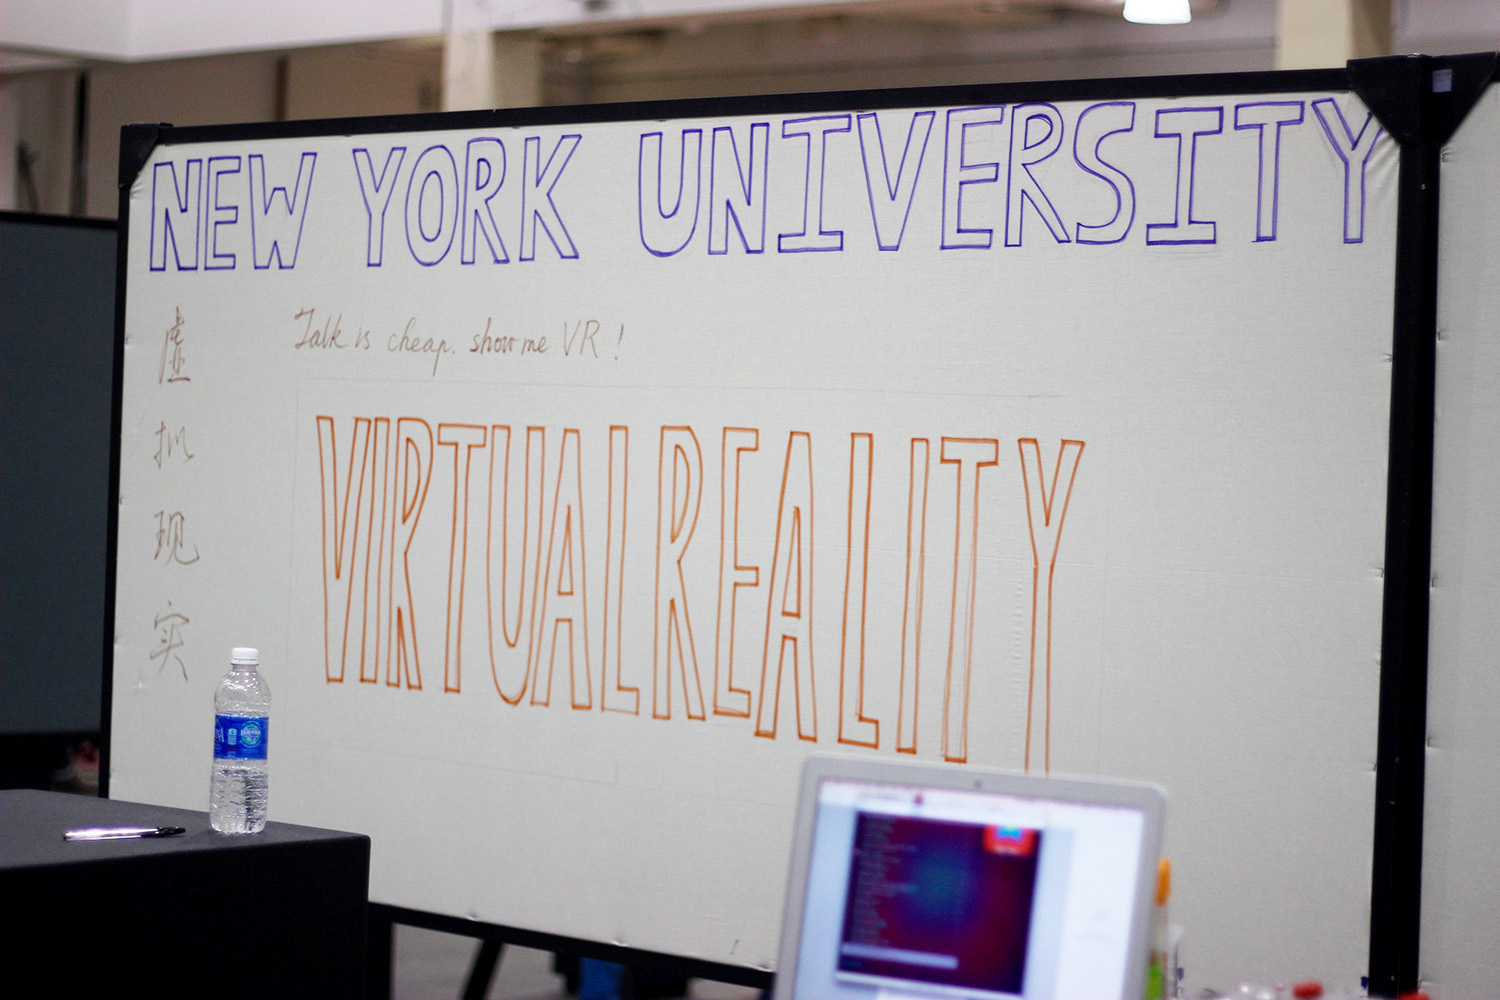 NEW YORK UNIVERSITY
Talk is cheap. show me VR!
VIRTUALREALITY
虚
拟
现
实